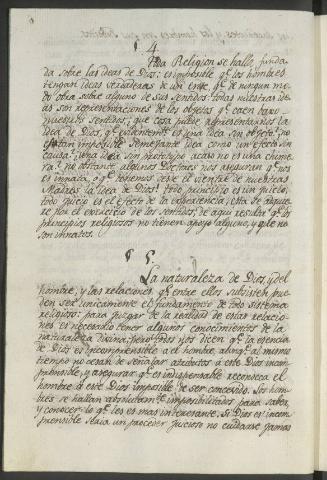 4
Toda Religion se halla funda-
da sobre las ideas de Dios: es imposible q.e los hombres
tengan ideas verdaderas de un ente q.e de ningun mo-
do obra sobre alguno de sus sentidos: todas nuestras ide-
as son representaciones de los objetos q.e caen baxo
nuestros sentidos; que cosa puede representarnos la
idea de Dios, q.e evidentem.te es una idea sin objeto? no
es tan imposible semejante idea como un efecto sin
causa? una idea sin prototypo acaso no es una chime-
ra? no obstante, algunos Doctores nos aseguran q.e nos
es innata, ó q.e tenemos desde el vientre de nuestras
Madres la idea de Dios! todo principio es un juicio,
todo juicio es el efecto de la experiencia, esta se adquie-
re por el exercicio de los sentidos; de aqui resulta q.e los
principios religiosos no tienen apoyo alguno, y q.e no
son innatos.
§ 5.
La naturaleza de Dios, y del
hombre, y las relaciones q.e entre ellos subsisten pue-
den ser unicamente el fundamento de todo sistema
religioso: para juzgar de la realidad de estas relacio-
nes es necesario tener algunos conocimientos de la
naturaleza divina; pero todos nos dicen q.e la esencia
de Dios es incomprensible á el hombre, aunq.e al mismo
tiempo no cesan de señalar atributos á este Dios incom-
prensible, y asegurar q.e es indispensable reconosca el
hombre á este Dios imposible de ser concevido. Los hom-
bres se hallan absolutam.te imposibilitados para saber,
y conocer lo q.e les es mas interesante. Si Dios es incom-
prensible seria un proceder juicioso no cuidarse jamas